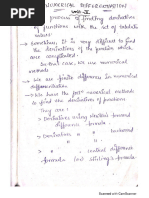 NUMERICAL DIFFERENTIATION
Unit-IV
process of finding derivatives
of functions with the set of tabular
values!
→ Sometimes, it is very difficult to find
the derivatives of the function which
are complicated.
In that case, we use numerical
methods
→ We use finite difference in numerical
differentiation.
→ We have the methods of numerical
to find derivatives of functions.
They are
Derivatives using Newton forward
difference formula.
Derivatives
central difference
formula (or) stirling's formula.
Scanned with CamScanner